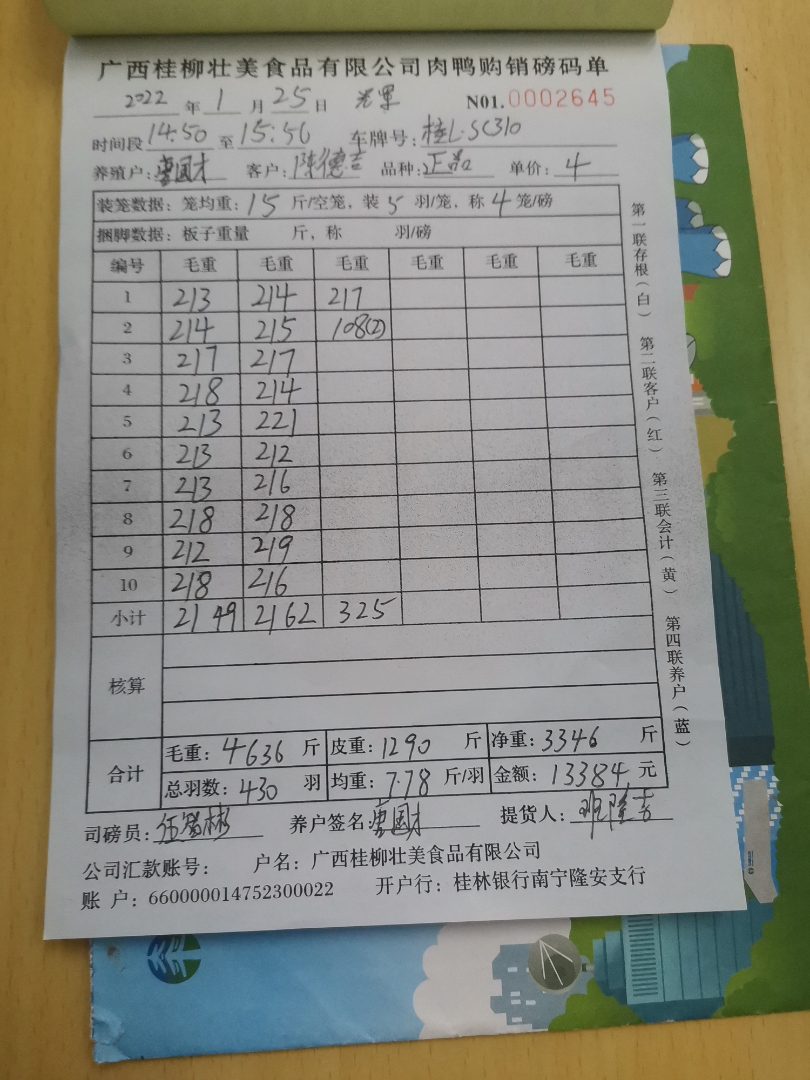 广西桂柳壮美食品有限公司肉鸭购销磅码单
2022 年 1 月 25 日 N01.0002645
时间段 14:50 至 15:56 车牌号: 桂L·SC310
养殖户: 曹国才 客户: 陈德吉 品种: 正品 单价: 4
装笼数据: 笼均重: 15 斤/空笼, 装 5 羽/笼, 称 4 笼/磅
捆脚数据: 板子重量 斤, 称 羽/磅
编号 毛重 毛重 毛重 毛重 毛重 毛重
1 213 214 217
2 214 215 108(2)
3 217 217
4 218 214
5 213 221
6 213 212
7 213 216
8 218 218
9 212 219
10 218 216
小计 2149 2162 325
核算
合计 毛重: 4636 斤 皮重: 1290 斤 净重: 3346 斤
总羽数: 430 羽 均重: 7.78 斤/羽 金额: 13384 元
司磅员: 养户签名: 曹国才 提货人:
公司汇款账号: 户名: 广西桂柳壮美食品有限公司
账 户: 660000014752300022 开户行: 桂林银行南宁隆安支行
第一联存根(白) 第二联客户(红) 第三联会计(黄) 第四联养户(蓝)